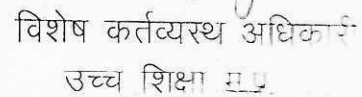 विशेष कर्तव्यस्थ अधिकारी
उच्च शिक्षा म.प्र.